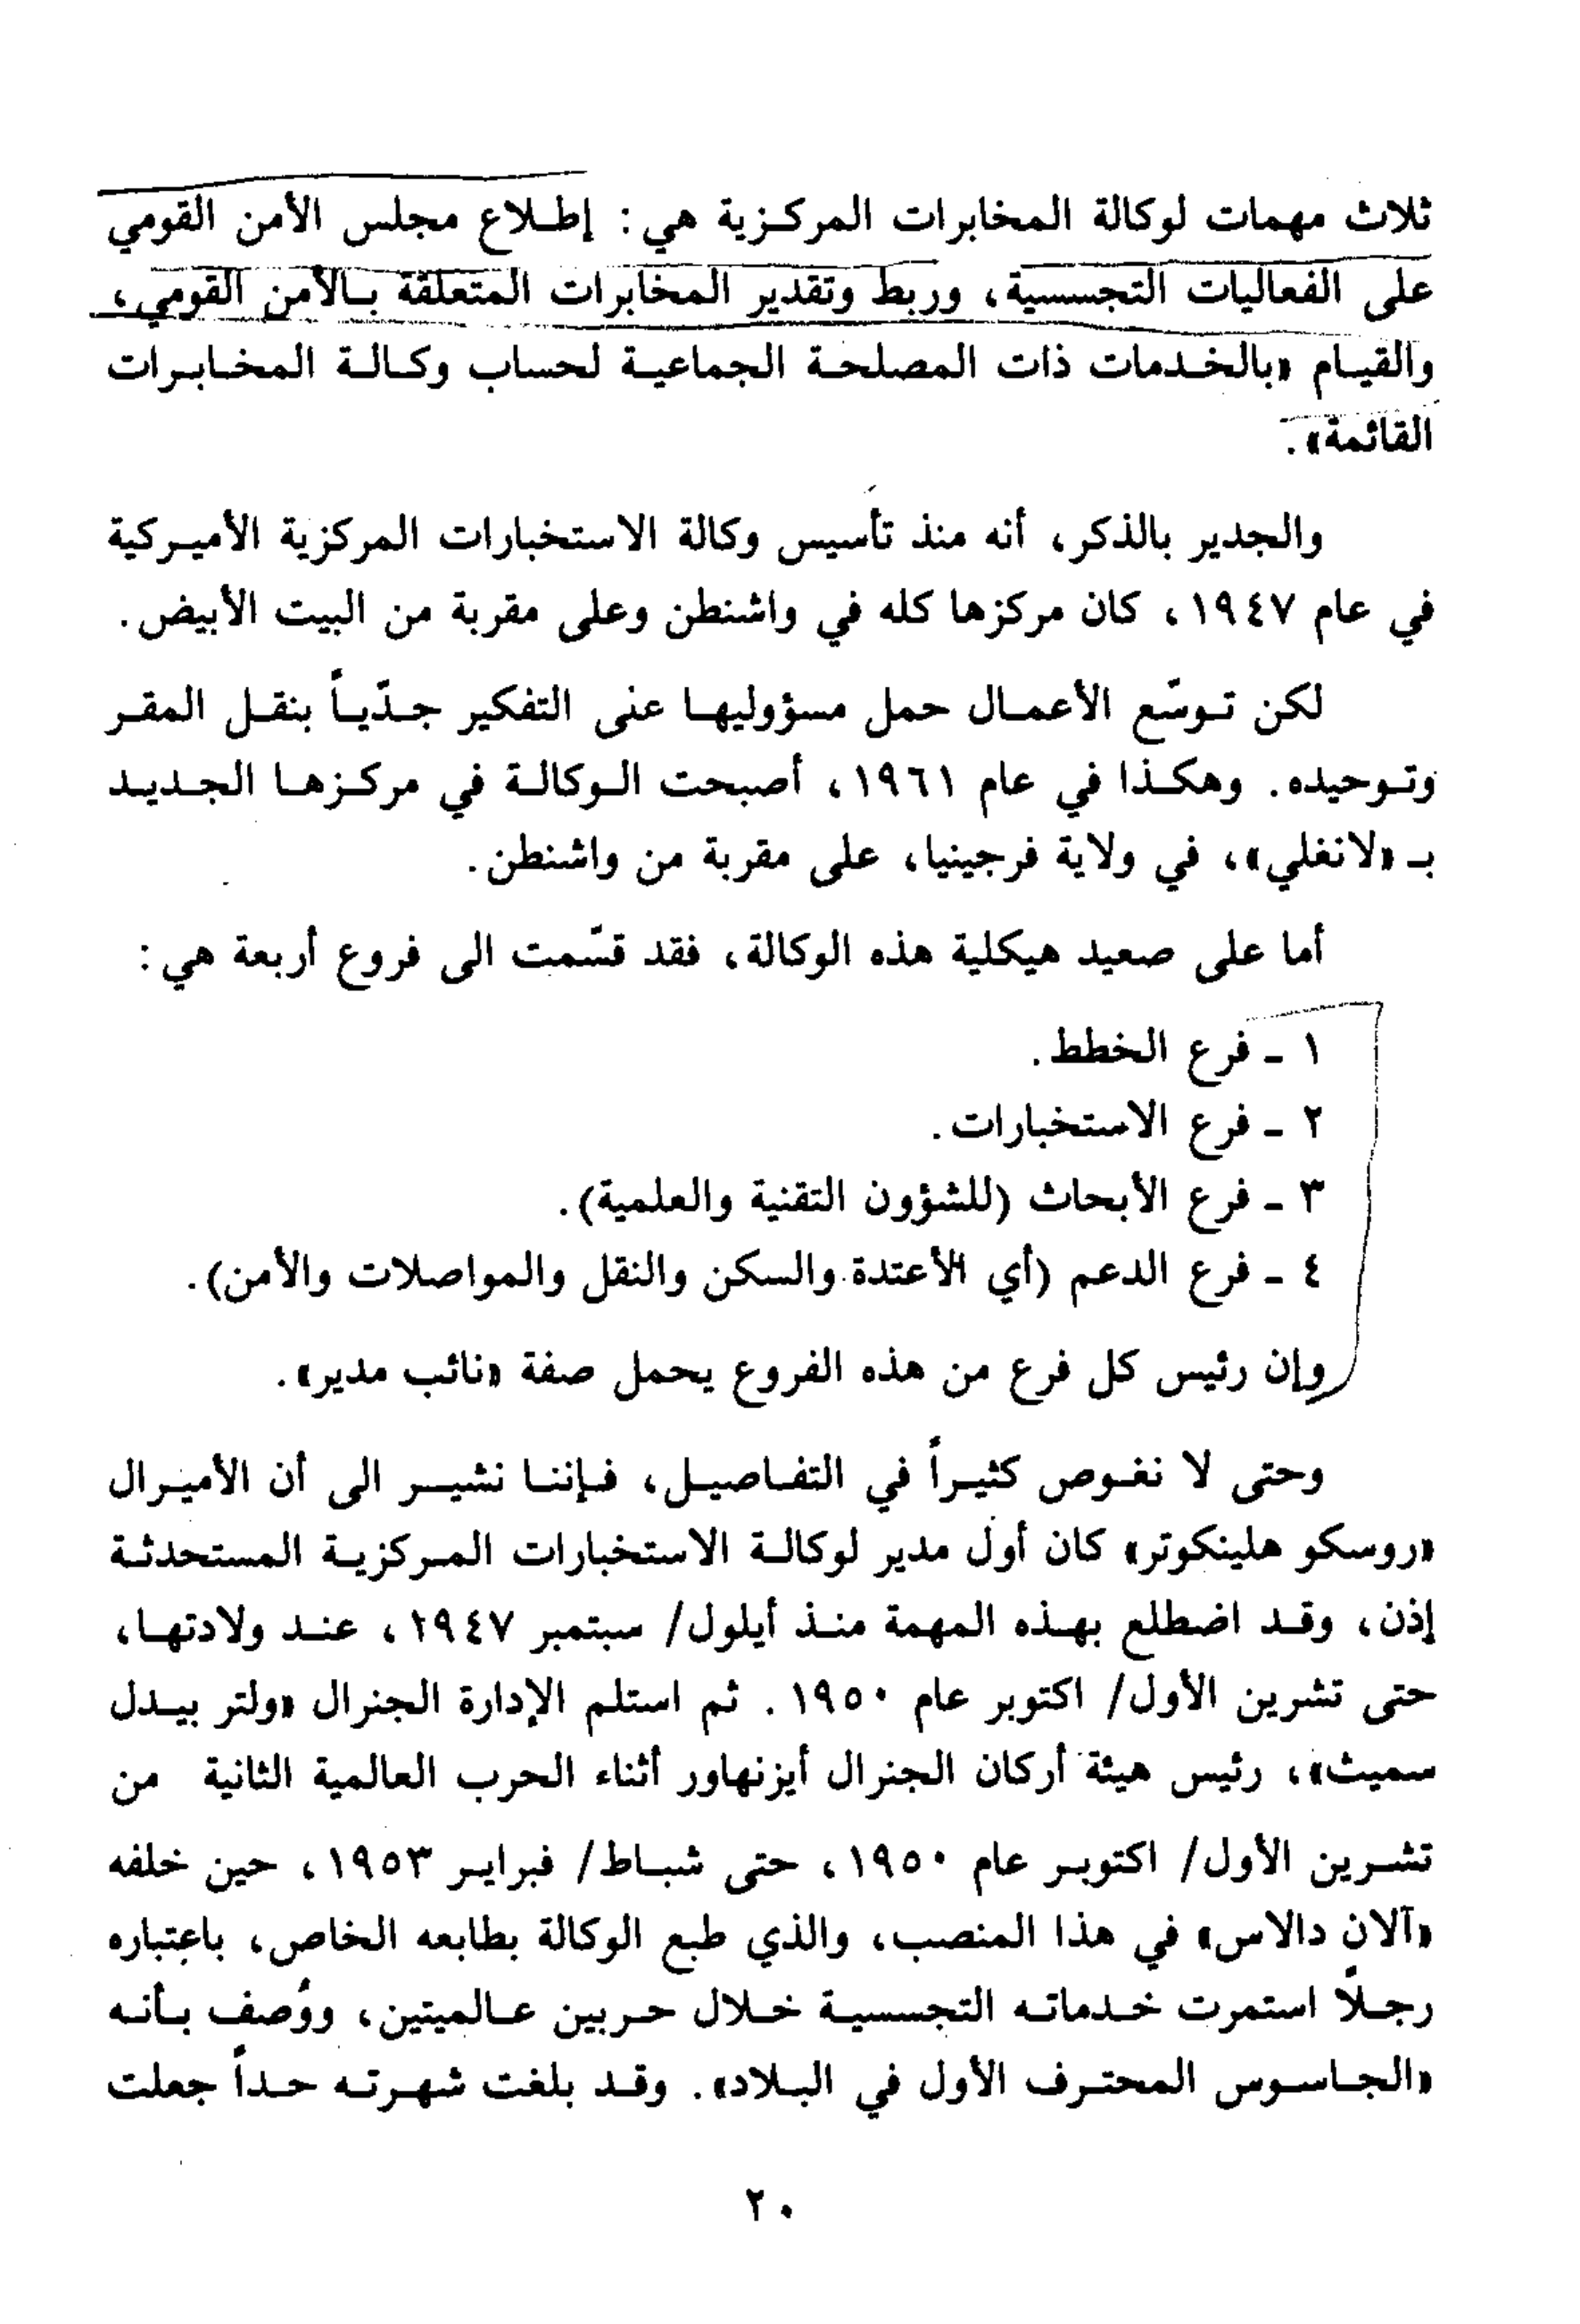 ثلاث مهمات لوكالة المخابرات المركزية هي: إطلاع مجلس الأمن القومي
على الفعاليات التجسسية، وربط وتقدير المخابرات المتعلقة بالأمن القومي،
والقيام «بالخدمات ذات المصلحة الجماعية لحساب وكالة المخابرات
القائمة».
والجدير بالذكر، أنه منذ تأسيس وكالة الاستخبارات المركزية الأميركية
في عام ١٩٤٧، كان مركزها كله في واشنطن وعلى مقربة من البيت الأبيض.
لكن توسّع الأعمال حمل مسؤوليها عنى التفكير جدّياً بنقل المقر
وتوحيده. وهكذا في عام ١٩٦١، أصبحت الوكالة في مركزها الجديد
بـ «لانغلي»، في ولاية فرجينيا، على مقربة من واشنطن.
أما على صعيد هيكلية هذه الوكالة، فقد قسّمت الى فروع أربعة هي:
١ - فرع الخطط.
٢ - فرع الاستخبارات.
٣ - فرع الأبحاث (للشؤون التقنية والعلمية).
٤ - فرع الدعم (أي الأعتدة والسكن والنقل والمواصلات والأمن).
وإن رئيس كل فرع من هذه الفروع يحمل صفة «نائب مدير».
وحتى لا نغوص كثيراً في التفاصيل، فإننا نشير الى أن الأميرال
«روسكو هلينكوتر» كان أول مدير لوكالة الاستخبارات المركزية المستحدثة
إذن، وقد اضطلع بهذه المهمة منذ أيلول/ سبتمبر ١٩٤٧، عند ولادتها،
حتى تشرين الأول/ اكتوبر عام ١٩٥٠. ثم استلم الإدارة الجنرال «ولتر بيدل
سميث»، رئيس هيئة أركان الجنرال أيزنهاور أثناء الحرب العالمية الثانية من
تشرين الأول/ اكتوبر عام ١٩٥٠، حتى شباط/ فبراير ١٩٥٣، حين خلفه
«آلان دالاس» في هذا المنصب، والذي طبع الوكالة بطابعه الخاص، باعتباره
رجلاً استمرت خدماته التجسسية خلال حربين عالميتين، ووُصف بأنه
«الجاسوس المحترف الأول في البلاد». وقد بلغت شهرته حداً جعلت
٢٠